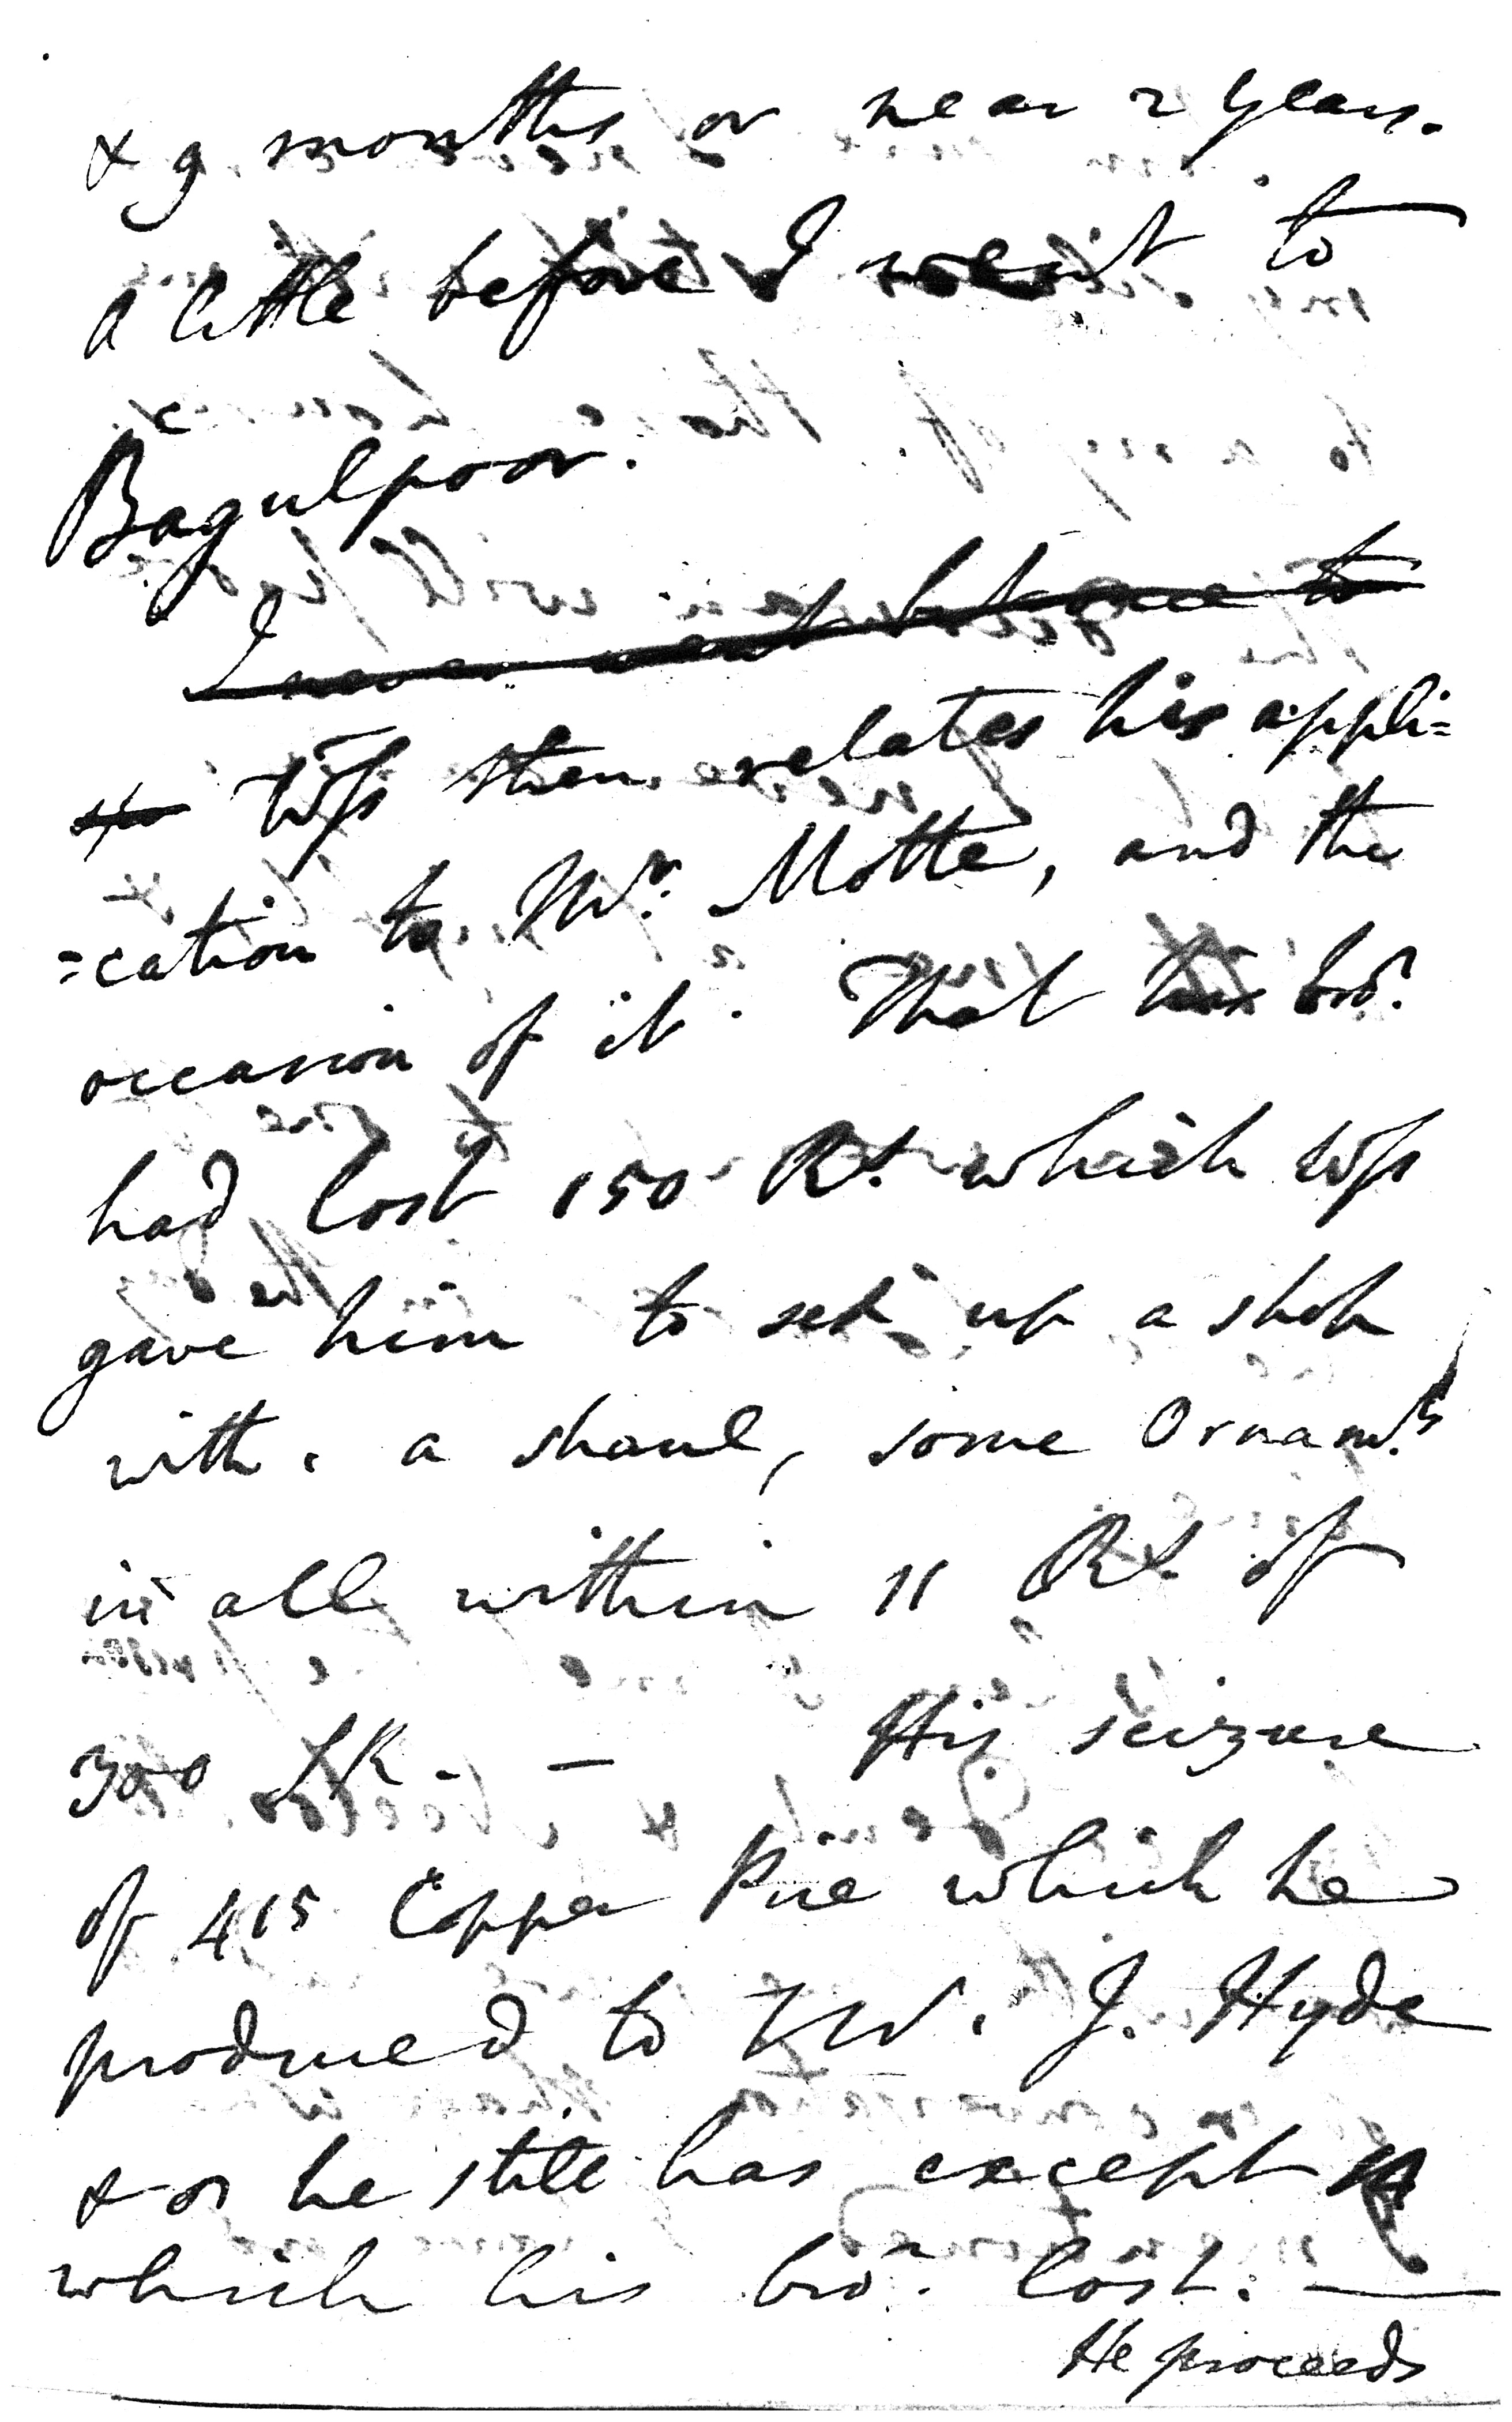 & 9 months or near 2 years.
A little before I went to
Bagulpoor.
I never went but once to
Wss then relates his appli=
=cation to Mr. Motte, and the
occasion of it. That his bror.
had lost 150 Rs. which Wss
gave him to set up a shop
with. a shaul, some Ornamts
in all within 11 Rs. of
300 SR. — His seizure
of 415 Copper Pice which he
produced to W. J. Hyde
& or he still has except
which his bror. lost. —
He proceeds